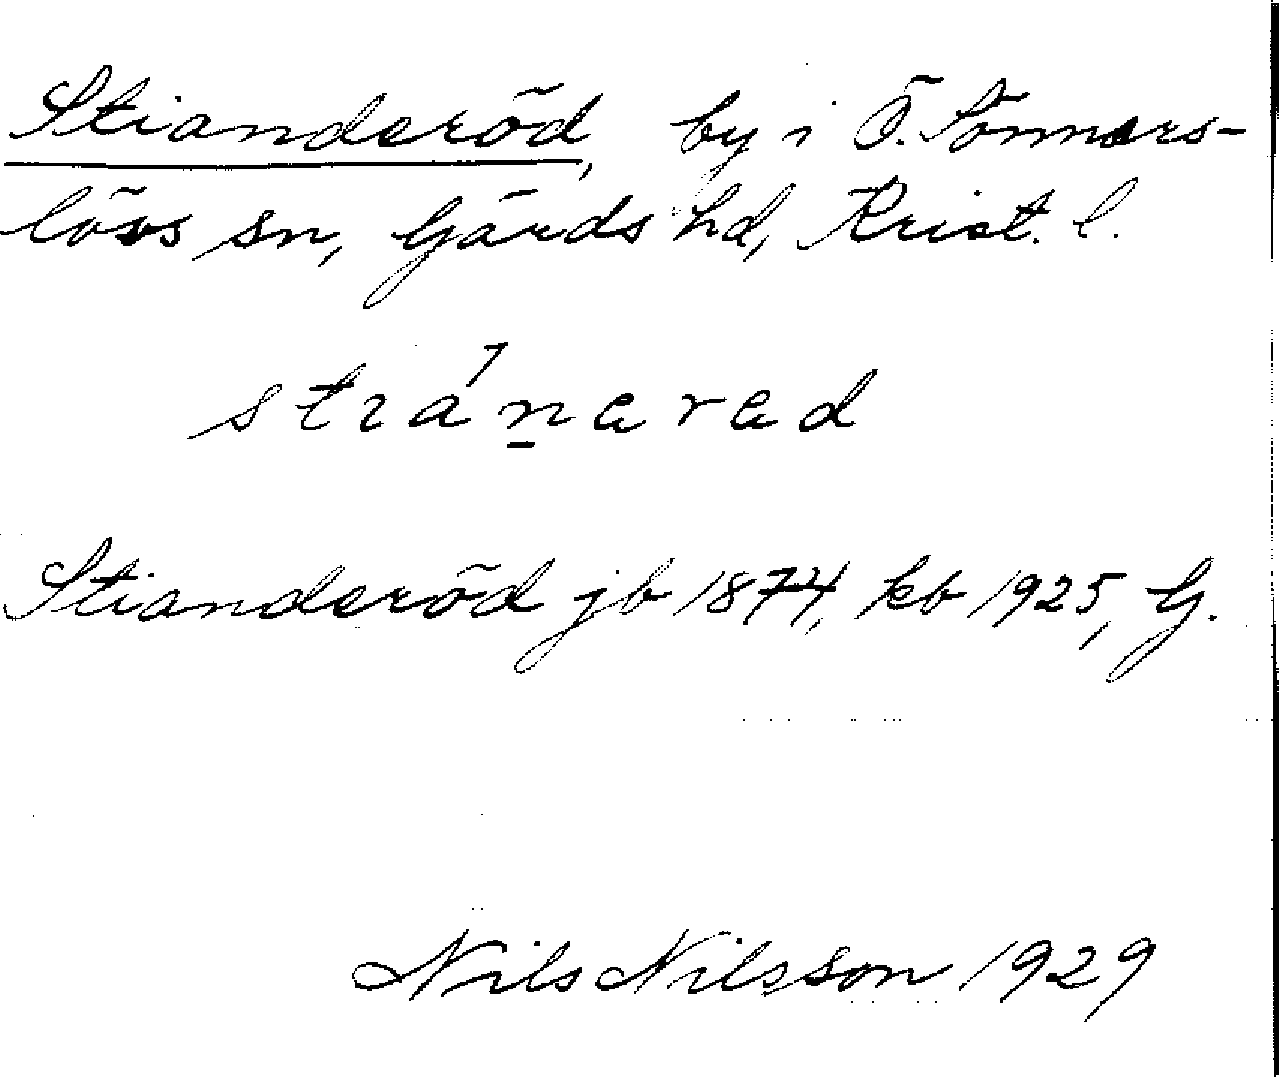 Stianderöd, by i Ö. Sönnars-
lövs sn, Gärds hd, Krist. l.
Stianderöd jb 1874, kb 1925, G.
Nils Nilsson 1929